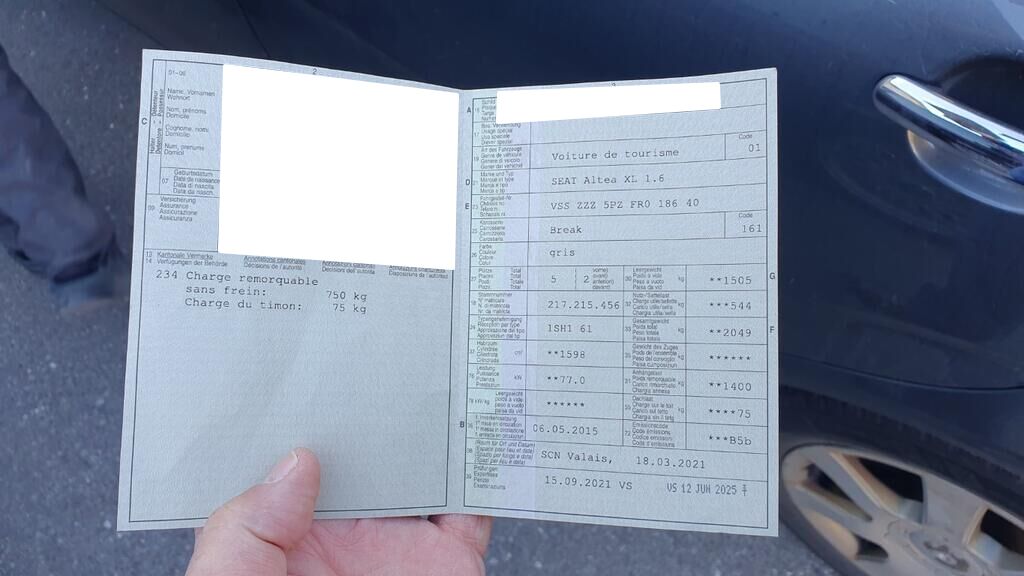 2
01-06
Name, Vornamen
Wohnort
Nom, prénoms
Domicile
Cognome, nomi
Domicilio
Num, prenums
Domicil
C
Halter Détenteur
Detentore Possessur
07
Geburtsdatum
Date de naissance
Data di nascita
Data da nasch.
09
Versicherung
Assurance
Assicurazione
Assicuranza
13 Kantonale Vermerke
14 Verfügungen der Behörde
Annotations cantonales
Décisions de l'autorité
Annotazioni cantonali
Decisioni dell'autorità
Annotaziuns chantunalas
Disposiziuns da l'autoritad
234 Charge remorquable
sans frein: 750 kg
Charge du timon: 75 kg
A
Bes. Verwendung
Usage spécial
Uso speciale
Diever spezial
Art des Fahrzeugs
Genre de véhicule
Genere di veicolo
Gener dal vehichel
Voiture de tourisme
Code
01
D
Marke und Typ
Marque et type
Marca e tipo
Marca e tip
SEAT Altea XL 1.6
E
Fahrgestell-Nr.
Châssis no
Telaio n.
Schassis nr.
VSS ZZZ 5PZ FR0 186 40
Karosserie
Carrosserie
Carrozzeria
Carossaria
Break
Code
161
Farbe
Couleur
Colore
Colur
gris
Plätze Total
Places Total
Posti Totale
Plazs Total
5
2
vorne)
avant)
anteriori)
davant)
Leergewicht
Poids à vide
Peso a vuoto
Paisa da vid
kg
**1505
G
Stammnummer
N° matricule
N. di matricola
Nr. da matricla
217.215.456
Nutz-/Sattellast
Charge utile/sellette
Carico utile/sella
Chargia utila/sella
kg
**544
Typengenehmigung
Réception par type
Approvazione del tipo
Approvaziun dal tip
1SH1 61
Gesamtgewicht
Poids total
Peso totale
Paisa totala
kg
**2049
F
Hubraum
Cylindrée
Cilindrata
Cilindrada
cm³
**1598
Gewicht des Zuges
Poids de l'ensemble
Peso del convoglio
Paisa cumposiziun
kg
******
Leistung
Puissance
Potenza
Prestaziun
kW
**77.0
Anhängelast
Poids remorquable
Carico rimorchiabile
Chargia annexa
kg
**1400
78 kW/kg
Leergewicht
poids à vide
peso a vuoto
paisa da vid
******
Dachlast
Charge sur le toit
Carico sul tetto
Chargia sin il tetg
kg
****75
B
36
1. Inverkehrsetzung
1re mise en circulation
1a messa in circolazione
1. entrada en circulaziun
06.05.2015
72
Emissionscode
Code émissions
Codice emissioni
Code d'emissiuns
***B5b
38
(Raum für Ort und Datum)
(Espace pour lieu et date)
(Spazio per luogo e data)
(Spazi per lieu e data)
SCN Valais, 18.03.2021
39
Prüfungen
Expertises
Perizie
Examinaziuns
15.09.2021 VS
VS 12 JUN 2025